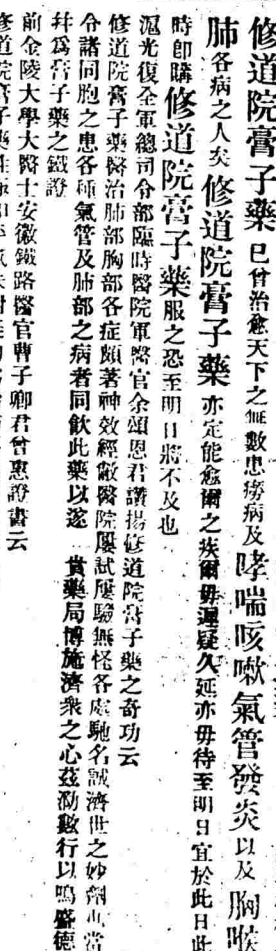 修道院膏子藥 已曾治愈天下之無數患癆病及 哮喘咳嗽氣管發炎以及 胸喉
肺各病之人矣 修道院膏子藥 亦定能愈爾之疾爾毋遲疑久延亦毋待至明日宜於此日此
時卽購 修道院膏子藥 服之恐至明日將不及也
滬光復全軍總司令部臨時醫院軍醫官余頌恩君讚揚修道院膏子藥之奇功云
修道院膏子藥醫治肺部胸部各症頗著神效經敝醫院屢試屢驗無怪各處馳名誠濟世之妙劑也當
令諸同胞之患各種氣管及肺部之病者同飲此藥以遂 貴藥局博施濟衆之心茲泐數行以鳴盛德
幷爲膏子藥之鐵證
前金陵大學大醫士安徽鐵路醫官曹子卿君曾惠證書云
修道院膏子藥